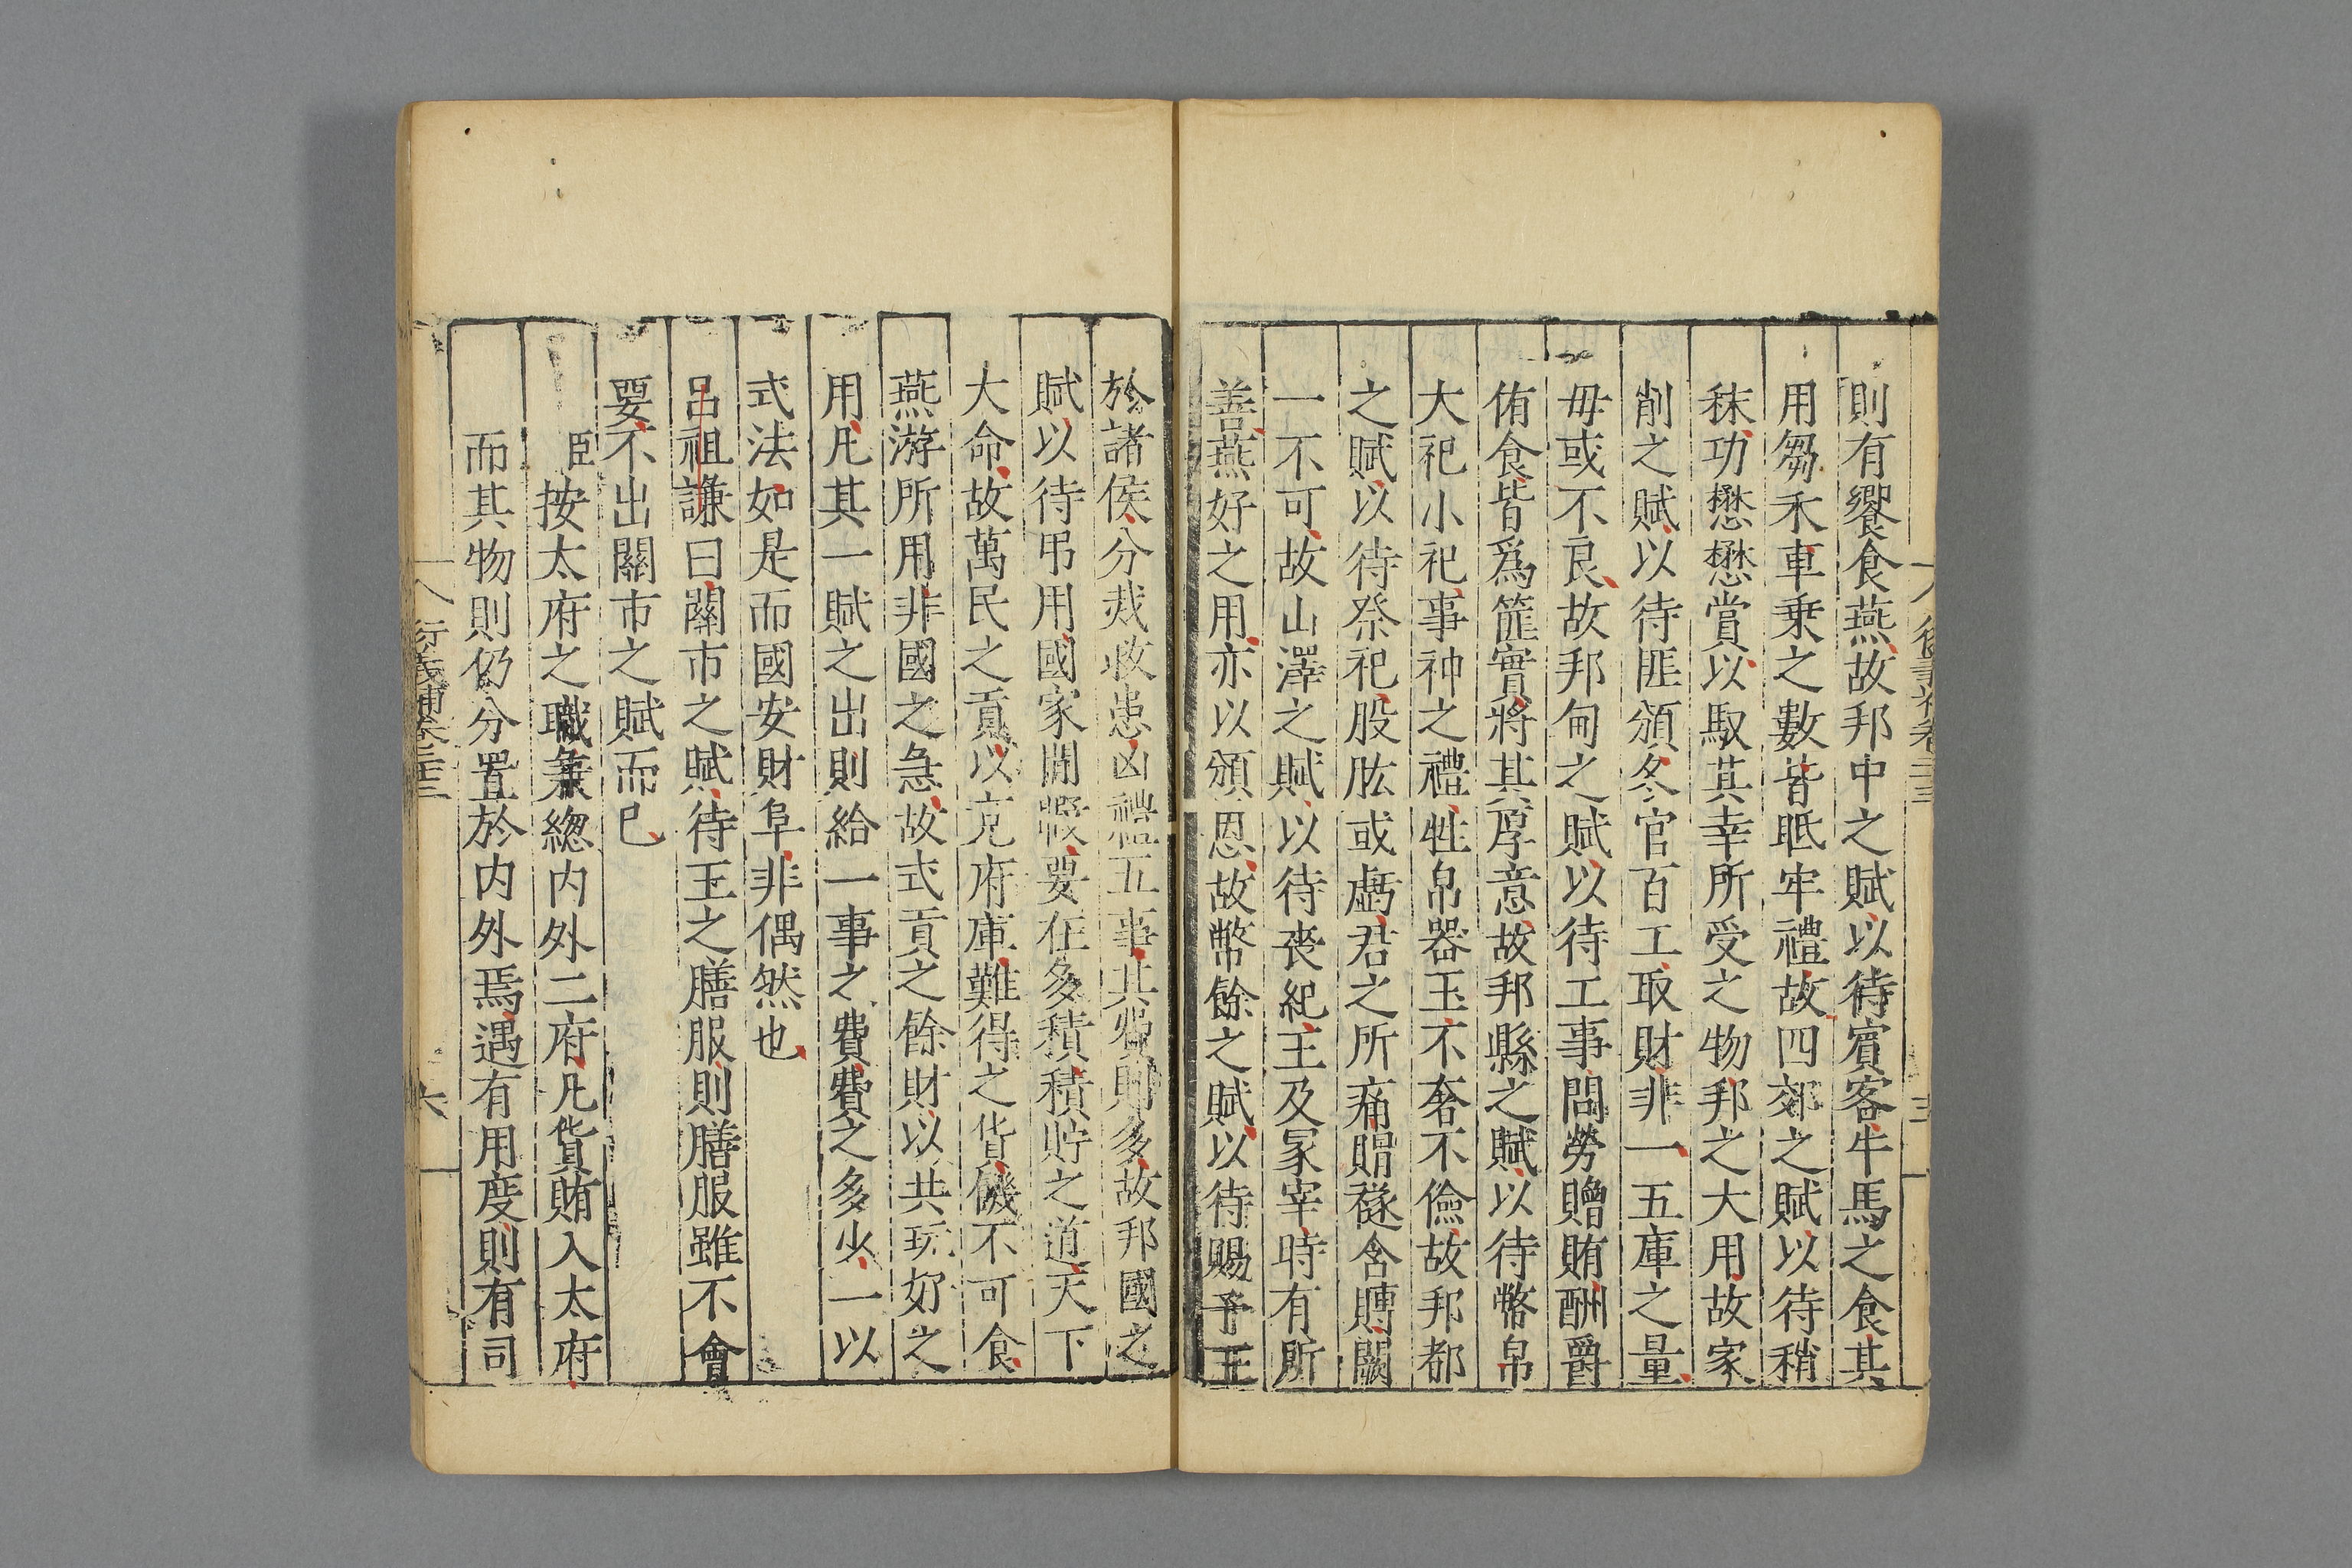 則有饗食燕故邦中之賦以待賓客牛馬之食其
用芻禾車乗之數皆眡牢禮故四郊之賦以待稍
秣功懋懋賞以馭其幸所受之物邦之大用故家
削之賦以待匪頒冬官百工取財非一五庫之量
毋或不良故邦甸之賦以待工事問勞贈賄酬爵
侑食皆爲篚實將其厚意故邦縣之賦以待幣帛
大祀小祀事神之禮牲帛器玉不奢不儉故邦都
之賦以待祭祀股肱或虧君之所痛賵襚含賻闕
一不可故山澤之賦以待喪紀王及冢宰時有所
善燕好之用亦以頒恩故幣餘之賦以待賜予王
於諸侯分烖救患凶禮五事共費則多故邦國之
賦以待弔用國家閒暇要在多積積貯之道天下
大命故萬民之貢以充府庫難得之貨饑不可食
燕游所用非國之急故式貢之餘財以共玩好之
用凡其一賦之出則給一事之費費之多少一以
式法如是而國安財阜非偶然也
呂祖謙曰關市之賦待王之膳服則膳服雖不會
要不出關市之賦而已
臣按太府之職兼緫内外二府凡貨賄入太府
而其物則仍分置於内外焉遇有用度則有司
衍義補卷二十三
六